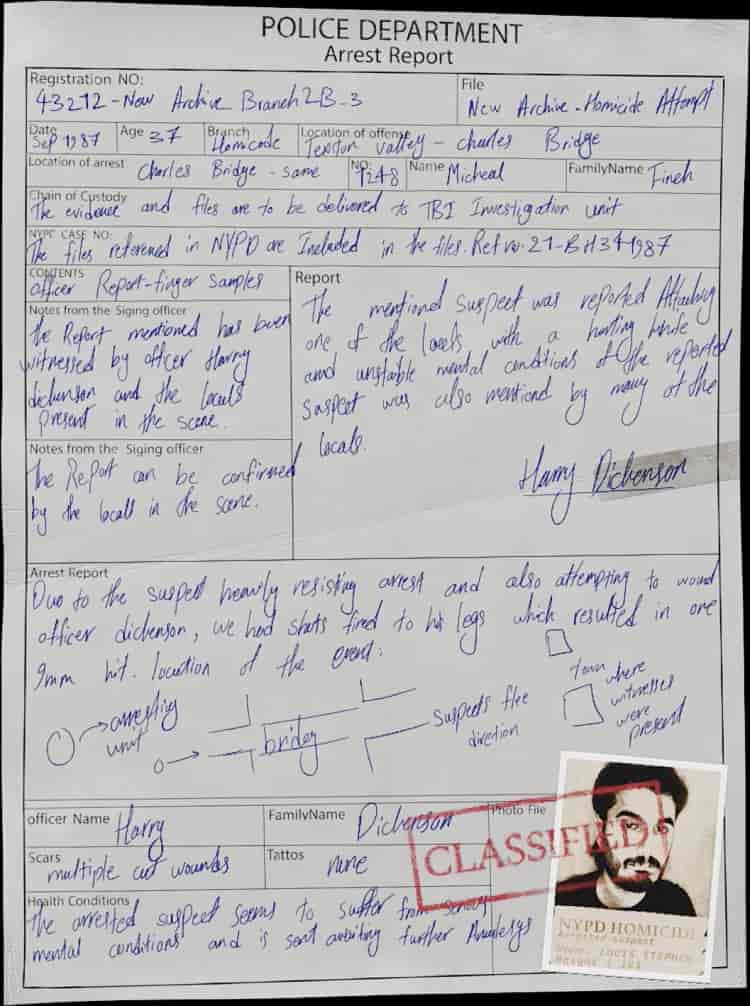 POLICE DEPARTMENT
Arrest Report
Registration NO:
43212-New Archive Branch 2B-3
File
New Archive-Homicide Attempt
Date
Sep 1987
Age 37
Branch
Homicode
Location of offense
valley - charles Bridge
Location of arrest
Charles Bridge - same
NO:
1248
Name Micheal
FamilyName Fineh
Chain of Custody
The evidence and files are to be delivered to TBI Investigation unit
NYPC CASE NO:
The files refrened in NYPD are Included in the files. Ref no. 21-BH34-1987
CONTENTS
officer Report-finger samples
Notes from the Siging officer
the Report mentioned has been
witnessed by officer Harry
dickenson and the locals
present in the scene.
Notes from the Siging officer
the Report can be confirmed
by the locals in the scene.
Report
The mentioned suspect was reported Attacking
one of the locals with a hunting knife
and unstable mental conditions of the reported
suspect was also mentiond by many of the
locals.
Harry Dickenson
Arrest Report
Due to the suspect heavily resisting arrest and also attempting to wound
officer dickenson, we had shots fired to his legs which resulted in one
9mm hit. location of the event:
arresting
unit
bridge
suspects flee
direction
town where
witnesses
were
present
officer Name Harry
FamilyName Dickenson
Photo File
Scars
multiple cut wounds
Tattos
none
CLASSIFIED
Health Conditions
the arrested suspect seems to suffer from serious
mental conditions and is sent awaiting further
NYPD HOMICIDE
suspect
LOUIS STEPHEN